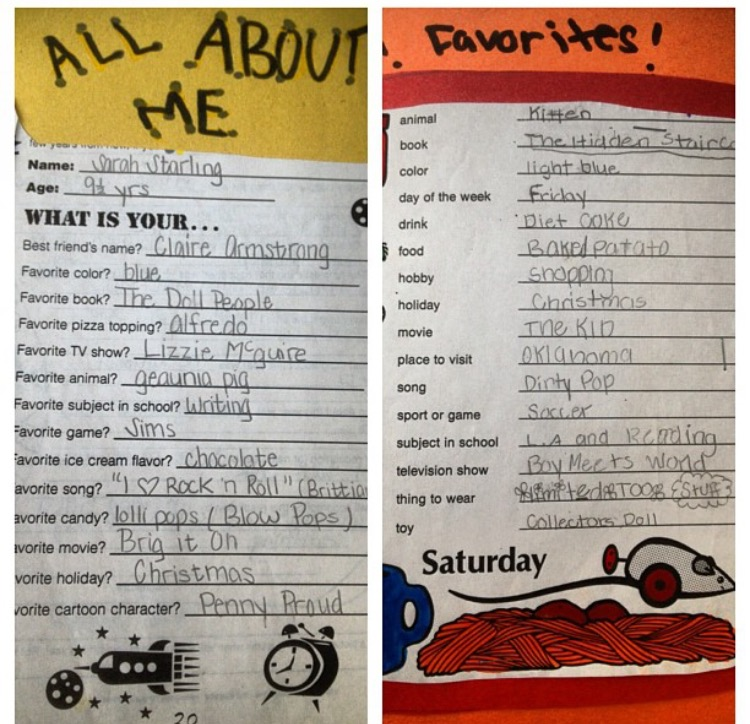 ALL ABOUT
ME
few years from now,
Name: Sarah Starling
Age: 9½ yrs
WHAT IS YOUR...
Best friend's name? Claire Armstrong
Favorite color? blue
Favorite book? The Doll People
Favorite pizza topping? alfredo
Favorite TV show? Lizzie McGuire
Favorite animal? geaunia pig
Favorite subject in school? Writing
Favorite game? Sims
avorite ice cream flavor? chocolate
avorite song? "I ♡ Rock 'n Roll" (Brittia
avorite candy? lolli pops (Blow Pops)
avorite movie? Brig it On
vorite holiday? Christmas
vorite cartoon character? Penny Proud
20
Favorites!
animal Kitten
book The Hidden Stairca
color light blue
day of the week Friday
drink Diet Coke
food Baked Patato
hobby shopping
holiday Christmas
movie The Kid
place to visit Oklahoma
song Dirty Pop
sport or game Soccer
subject in school L.A and Reading
television show Boy Meets World
thing to wear limited TOO Stuff
toy Collectors Doll
Saturday